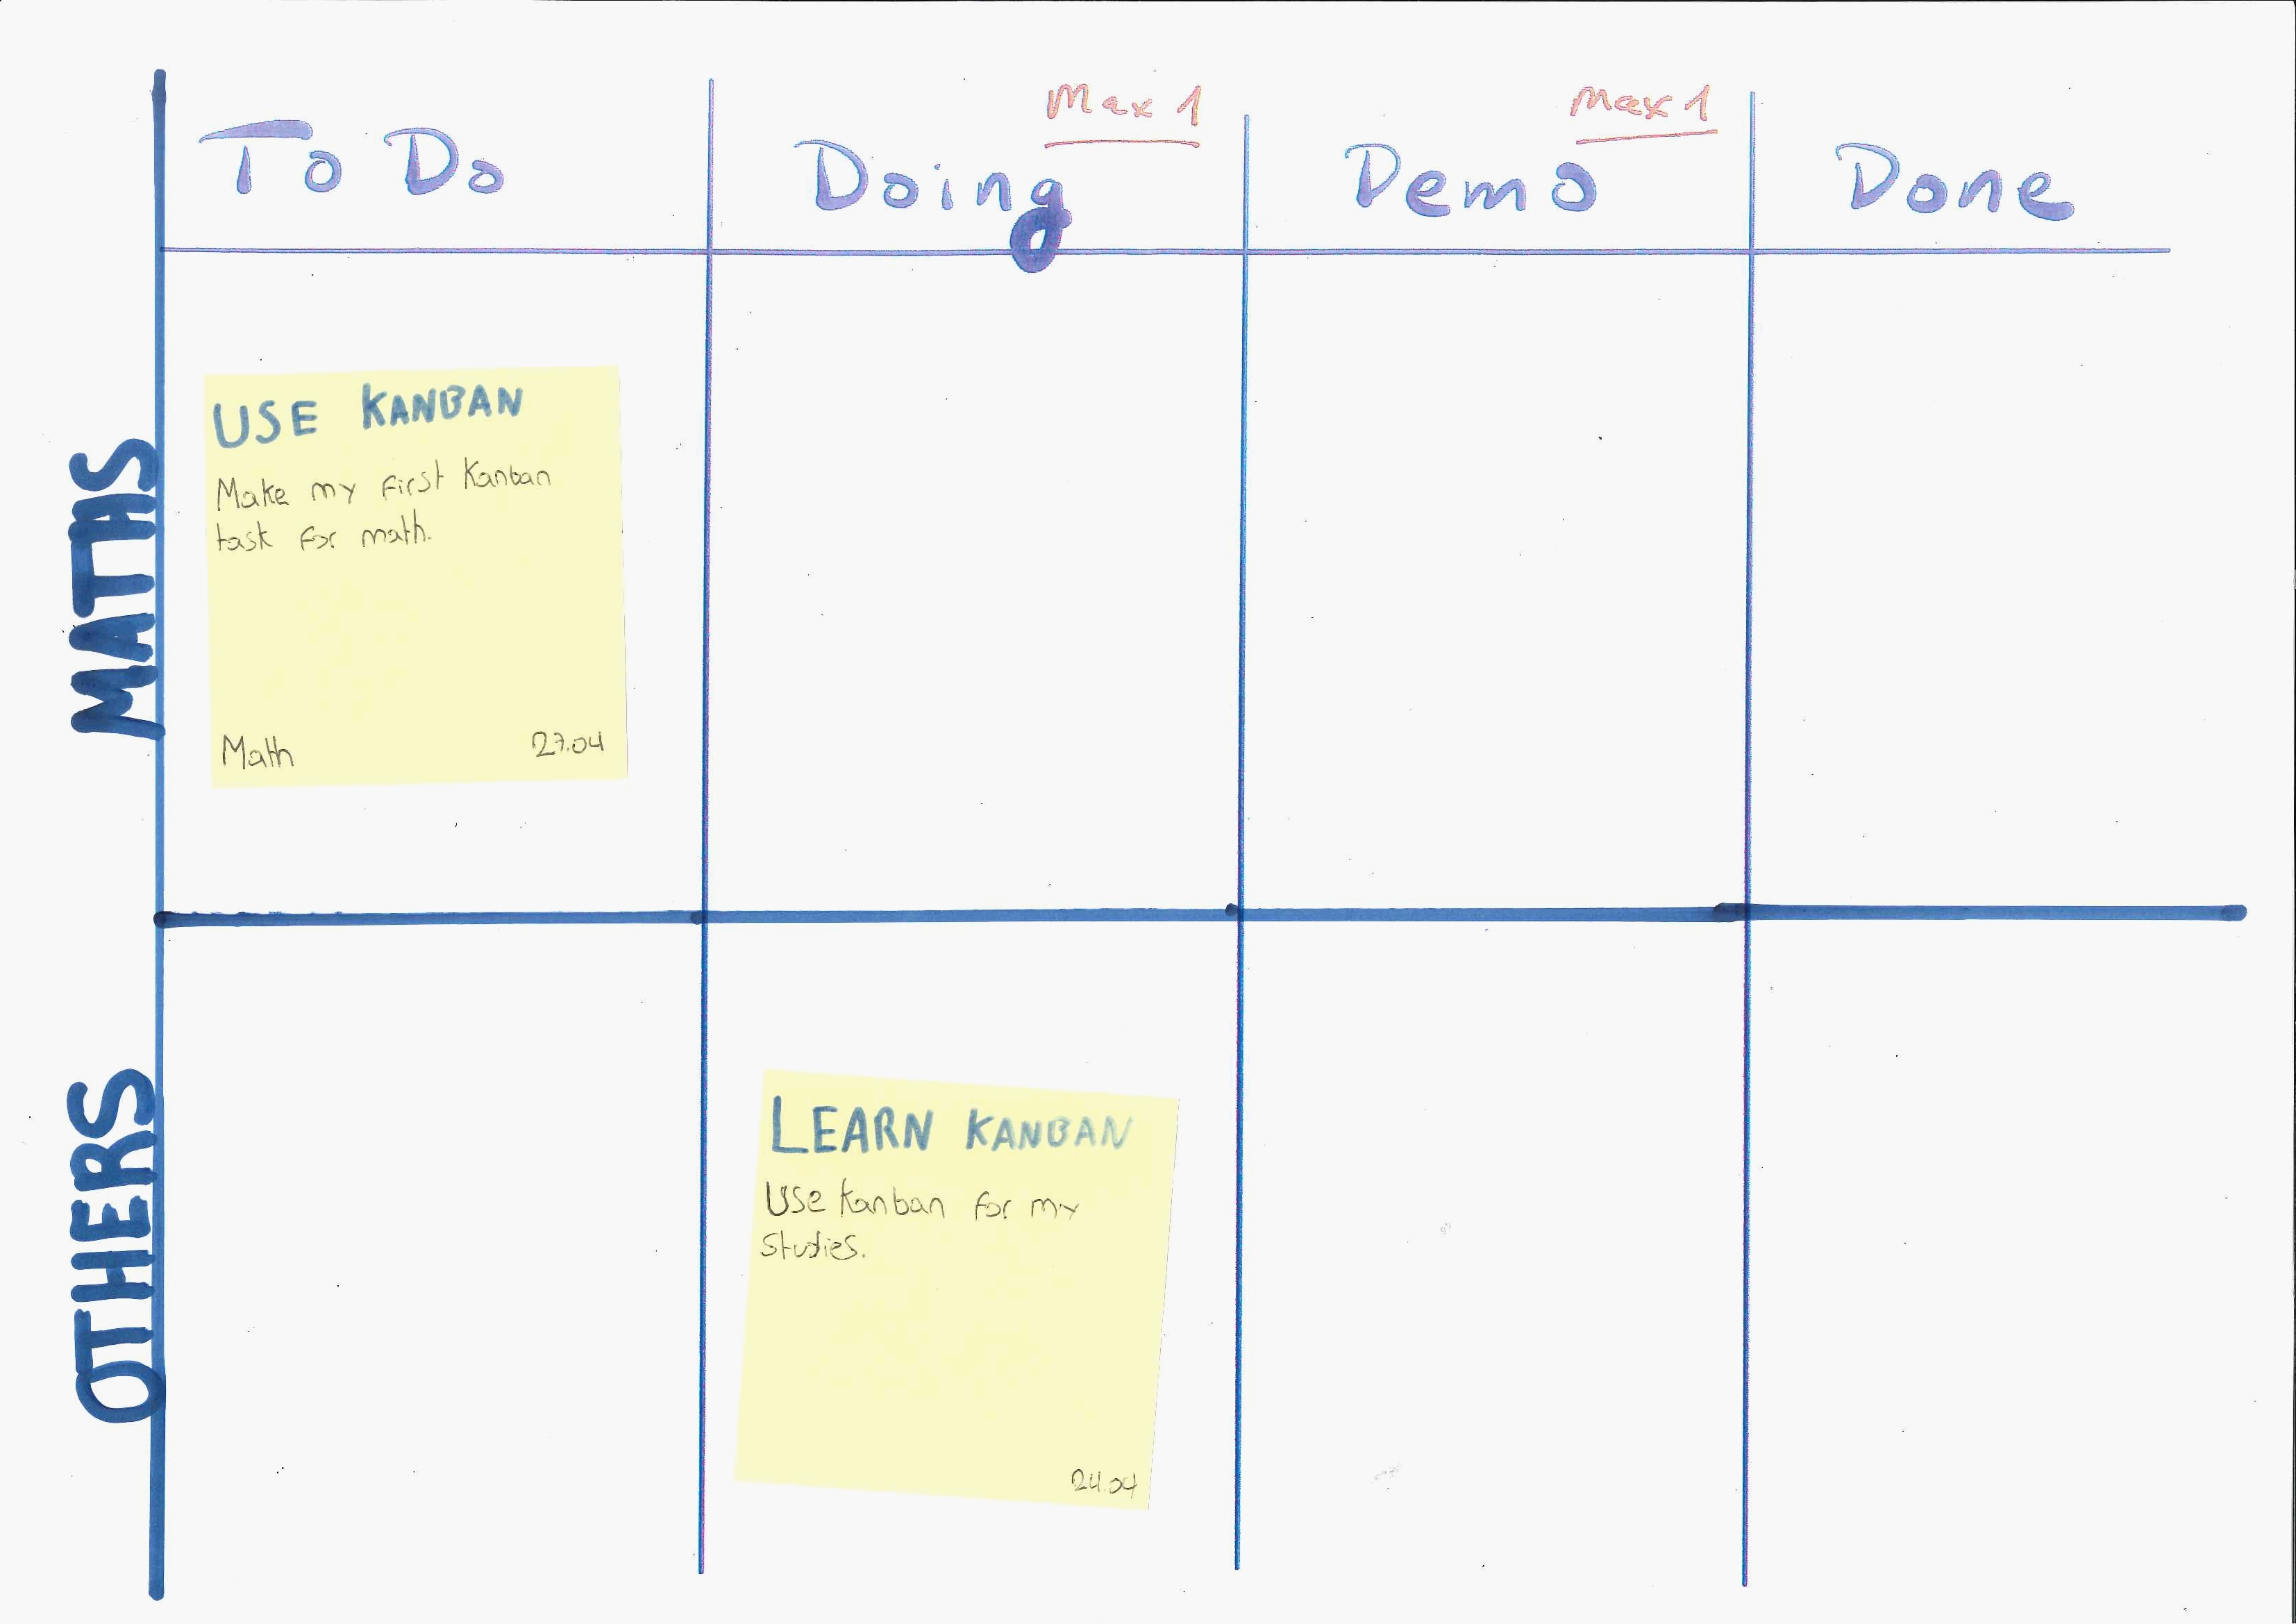 Max 1
Max 1
To Do
Doing
Demo
Done
MATHS
USE KANBAN
Make my first Kanban
task for math.
Math
27.04
OTHERS
LEARN KANBAN
Use Kanban for my
studies.
24.04